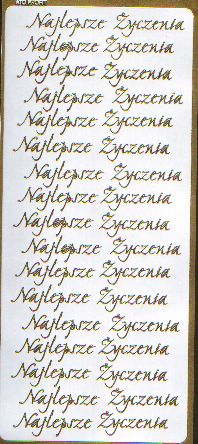 Najlepsze Życzenia
Najlepsze Życzenia
Najlepsze Życzenia
Najlepsze Życzenia
Najlepsze Życzenia
Najlepsze Życzenia
Najlepsze Życzenia
Najlepsze Życzenia
Najlepsze Życzenia
Najlepsze Życzenia
Najlepsze Życzenia
Najlepsze Życzenia
Najlepsze Życzenia
Najlepsze Życzenia
Najlepsze Życzenia
Najlepsze Życzenia
Najlepsze Życzenia